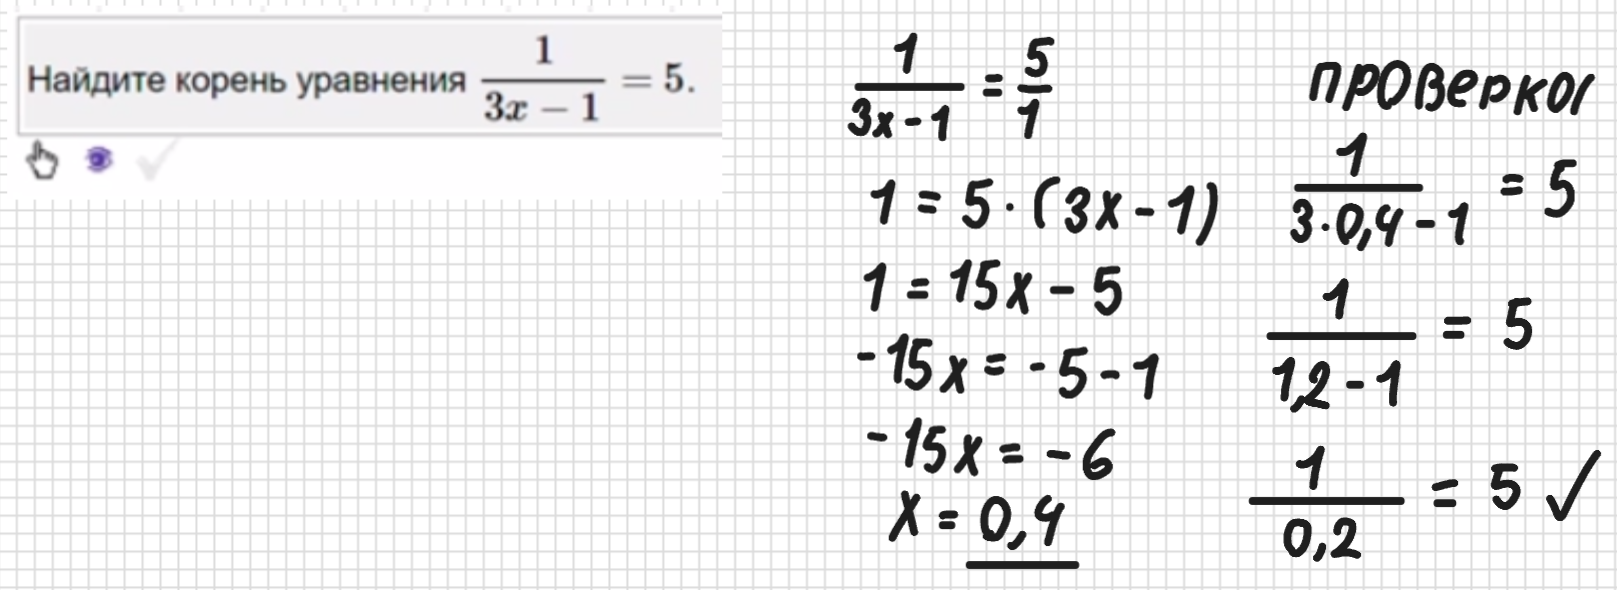 Найдите корень уравнения 1/(3x − 1) = 5.
1/(3x - 1) = 5/1
1 = 5 · (3x - 1)
1 = 15x - 5
-15x = -5 - 1
-15x = -6
x = 0,4
проверка
1/(3·0,4 - 1) = 5
1/(1,2 - 1) = 5
1/0,2 = 5 ✓